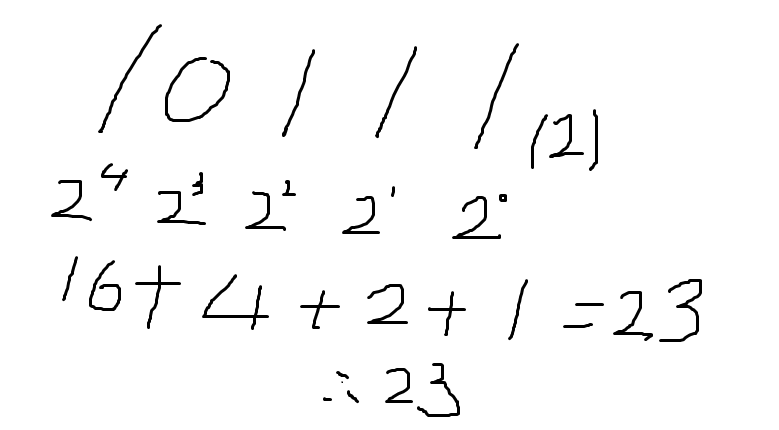 10111(2)
2⁴ 2³ 2² 2¹ 2⁰
16+4+2+1=23
∴23